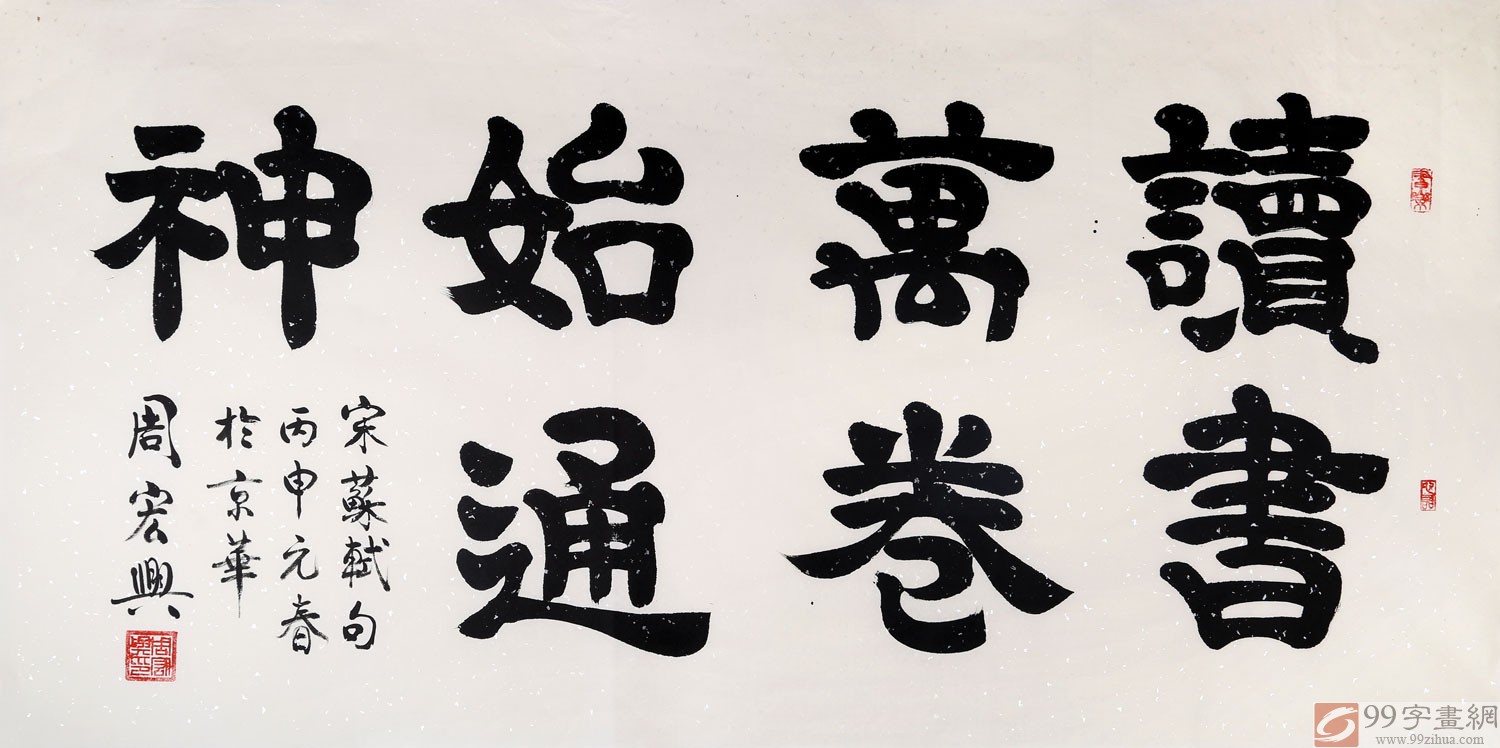 讀書
萬卷
始通
神
宋蘇軾句
丙申元春
於京華
周宏興
99字畫網
www.99zihua.com